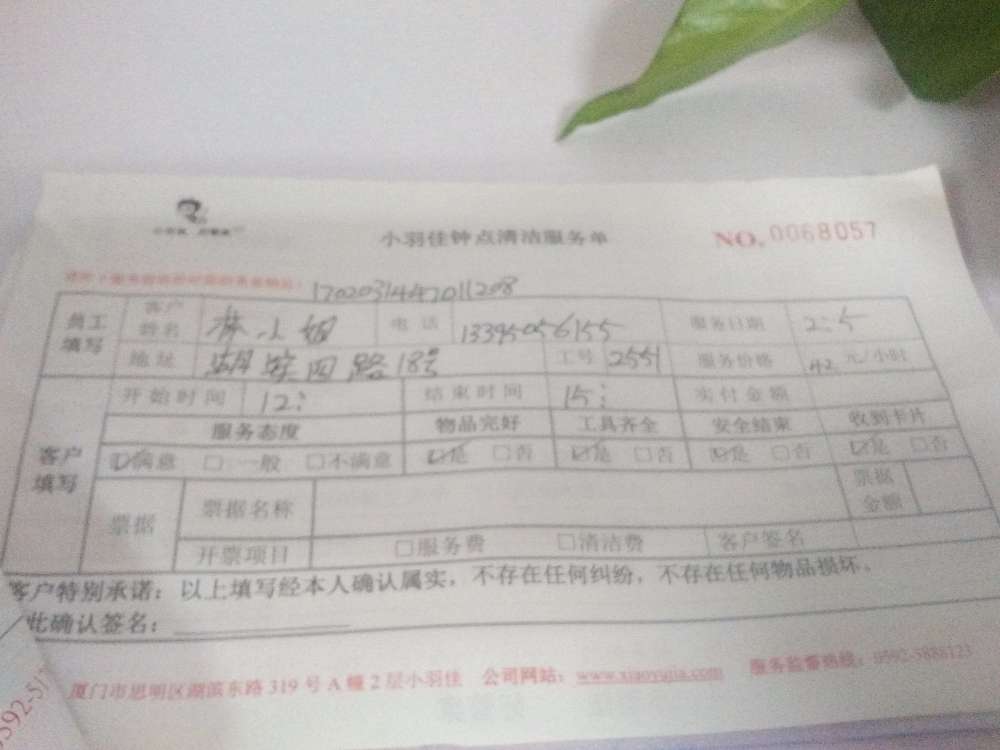 小羽佳钟点清洁服务单 NO. 0068057
1702031447011208
员工填写 客户姓名 林小姐 电话 13395056155 服务日期 2:5
地址 湖滨四路18号 工号 2551 服务价格 42 元/小时
客户填写 开始时间 12: 结束时间 15: 实付金额
服务态度 物品完好 工具齐全 安全结束 收到卡片
☑满意 □一般 □不满意 ☑是 □否 ☑是 □否 ☑是 □否 ☑是 □否
票据 票据名称 票据金额
开票项目 □服务费 □清洁费 客户签名
客户特别承诺：以上填写经本人确认属实，不存在任何纠纷，不存在任何物品损坏。
此确认签名：
厦门市思明区湖滨东路319号A幢2层小羽佳 公司网站：www.xiaoyujia.com 服务监督热线：0592-5888123